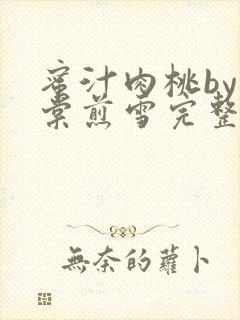 蜜汁肉桃by
棠煎雪完整
無奈的蘿卜